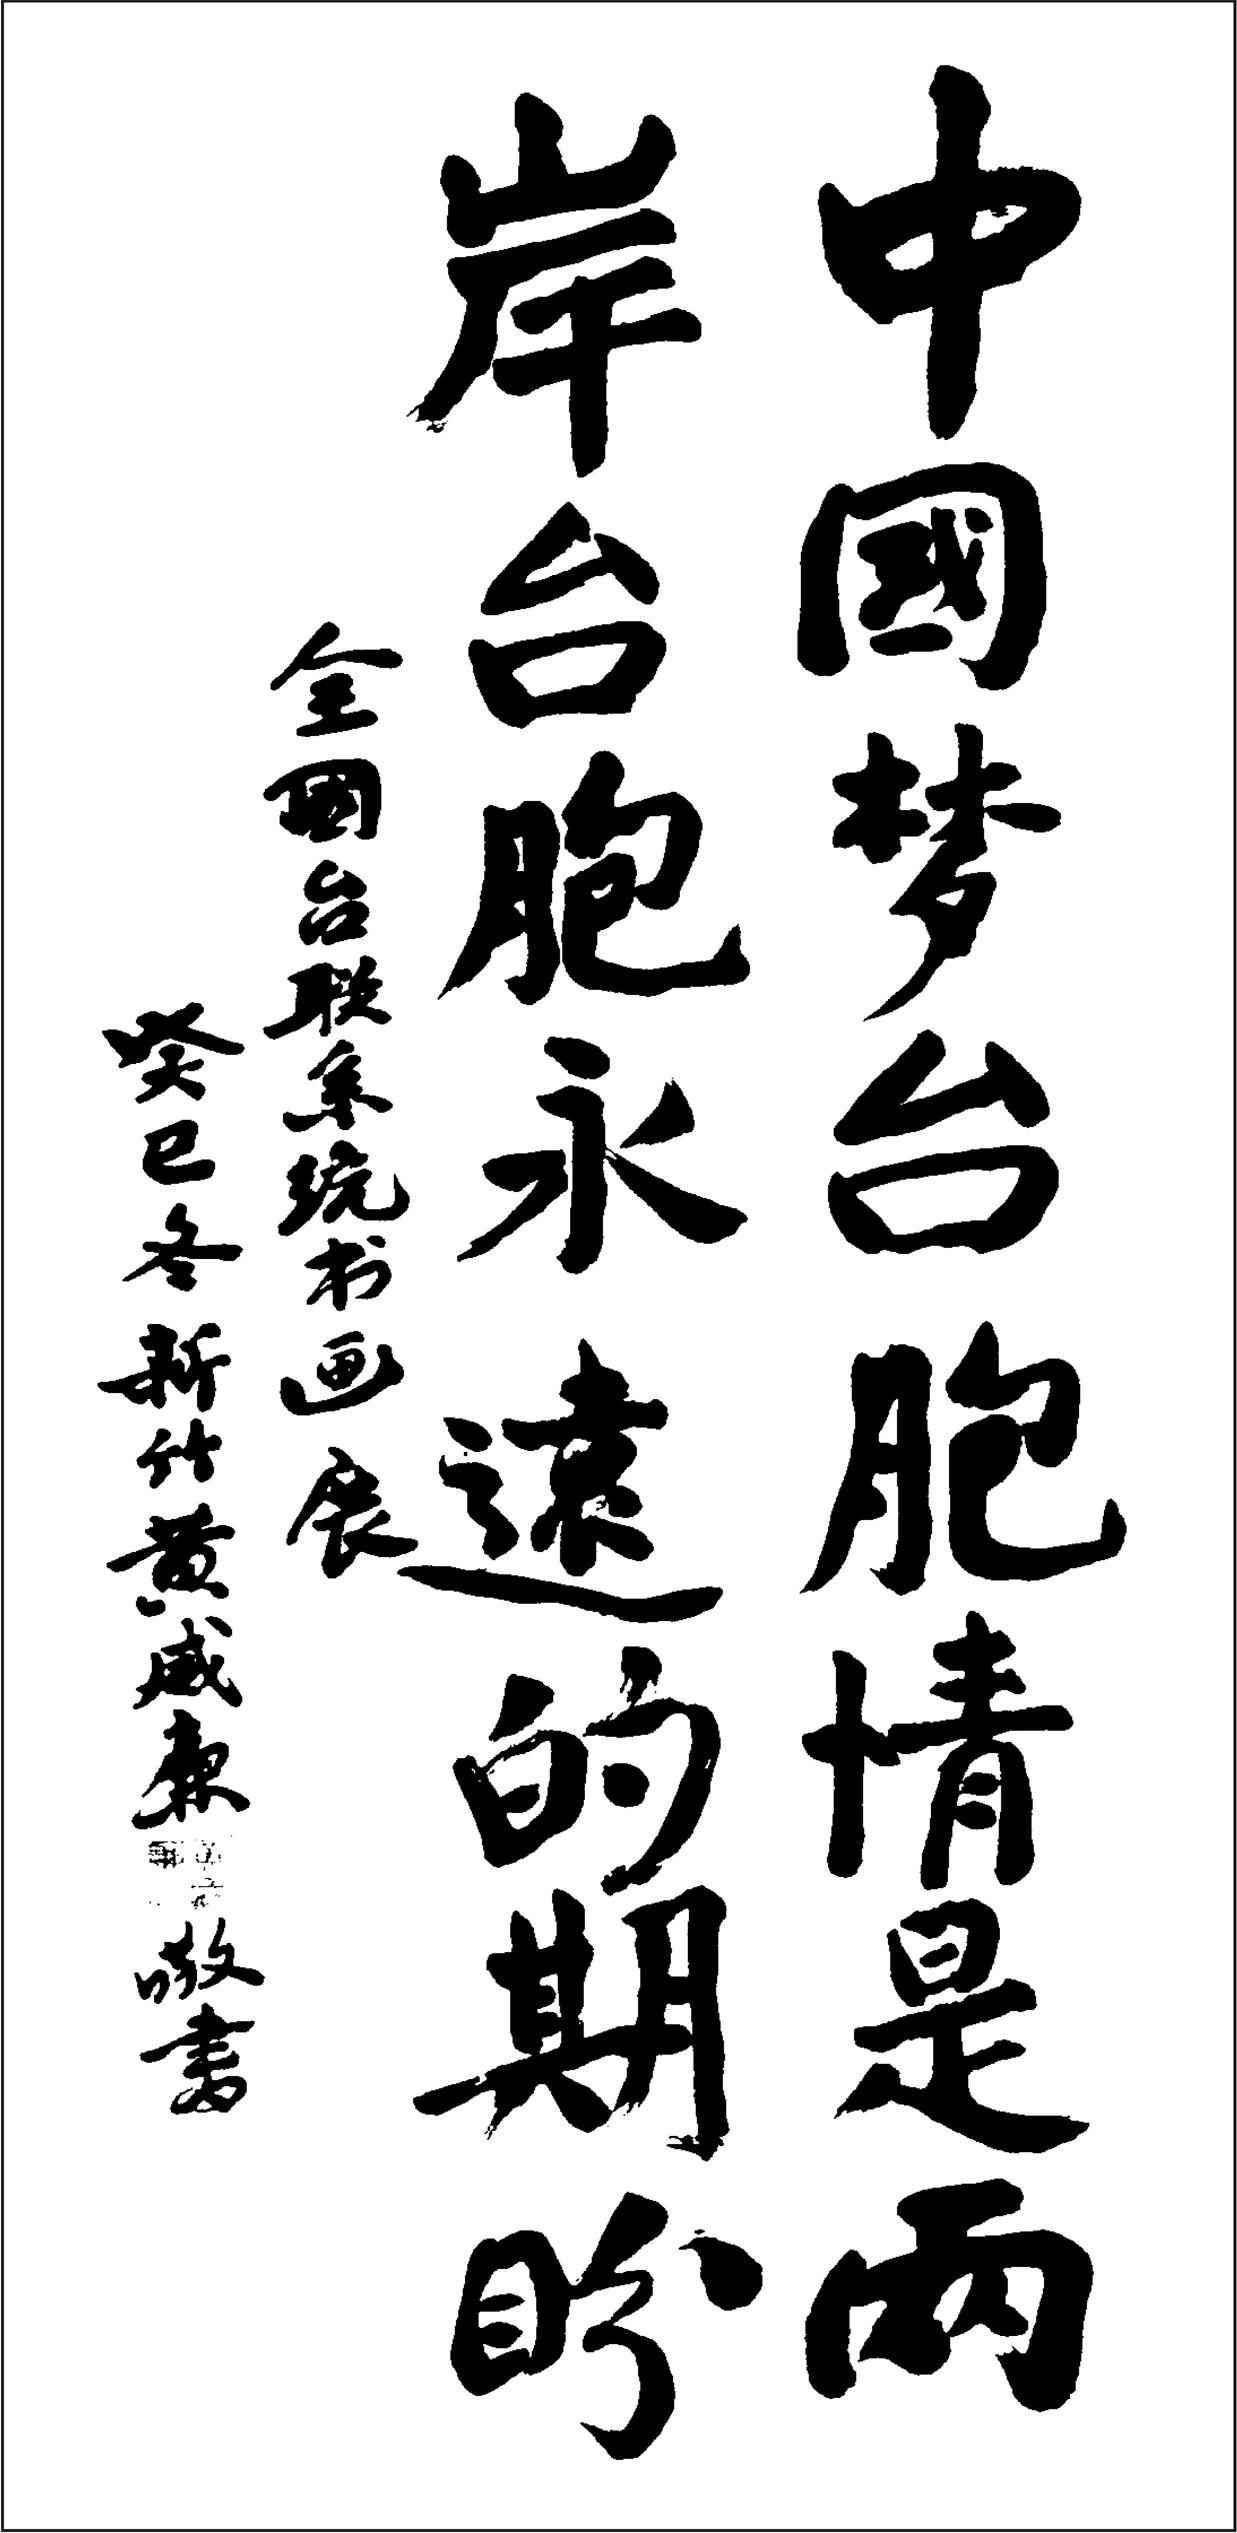 中國梦台胞情是两
岸台胞永遠的期盼
全國台联系统书画展
癸巳冬新竹黄威廉敬書